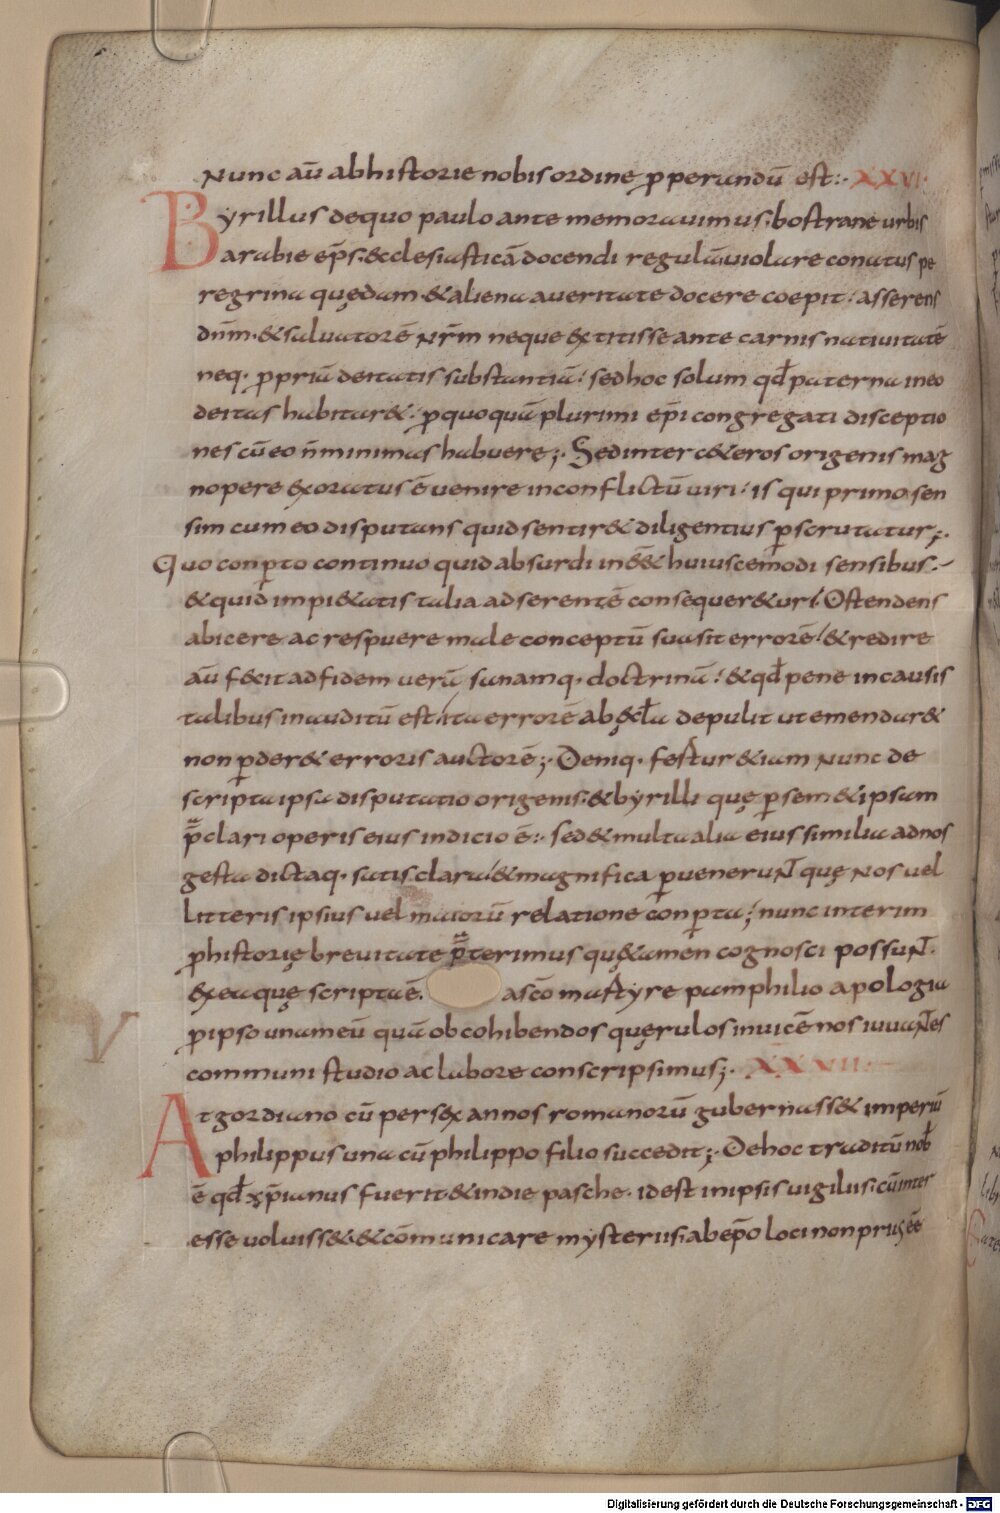 Nunc aū abhistorie nobis ordine ꝓperandū est:· XXVI·
Byrillus dequo paulo ante memorauimus; bostrane urbis
arabie ep̄s; &clesiasticā docendi regulā uiolare conatus pe
regrina quędam &aliena aueritate docere coepit; asserens
dn̄m·&saluatorē nr̄m neque extitisse ante carnis natiuitatē
neq· ꝓpriā deitatis substantiā; sed hoc solum qđ paterna ineo
deitas habitar&; ꝓquo quā plurimi ep̄i congregati disceptio
nes cū eo n̄ minimas habuere;· Sed inter c&eros origenis mag
nopere exoratus ē uenire inconflictū uiri; is qui primo sen
sim cum eo disputans quid sentir& diligentius ꝑscrutatur;·
Quo conꝑto continuo quid absurdi in ēē& huiuscemodi sensibus·
&quid impi&atis talia adserentē consequer&ur; Ostendens
abicere ac respuere male conceptū suasit errorē; &redire
aū fecit ad fidem uerā sanamq· doctrinā; &qđ pene incausis
talibus inauditū est; ita errorē ab ęccl̄a depulit ut emendar&
non ꝑder& erroris auctorē;· Deniq· festur &iam nunc de
scripta ipsa disputatio origenis; &byrilli quę ꝑ sem&ipsam
p̄clari operis eius indicio ē:· sed &multa alia eius similia ad nos
gesta dictaq· satis clara; &magnifica ꝑuenerunt quę nos uel
litteris ipsius uel maiorū relatione conꝑta; nunc interim
ꝓ historię breuitate p̄terimus quę tamen cognosci possunt·
ex ea quę scripta ē· asc̄o martyre pamphilio apologia
ꝓ ipso una meū quā ob cohibendos quęrulos inuicē nos iuuantes
communi studio ac labore conscripsimus;· XXVII·
At gordiano cū per sex annos romanorū gubernass& imperiū
philippus una cū philippo filio succedit;· De hoc traditū nob̄
ē qđ xp̄ianus fuerit &in die pasche· id est in ipsis uigiliis; cū inter
esse uoluiss& &cōmunicare mysteriis; ab ep̄o loci non prius ēē